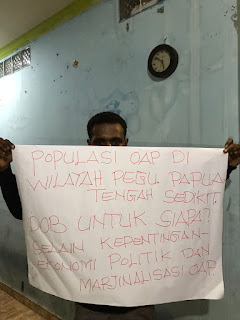 POPULASI OAP DI
WILAYAH PEGU. PAPUA
TENGAH SEDIKIT.
DOB UNTUK SIAPA?
SELAIN KEPENTINGAN-
EKONOMI POLITIK DAN
MARJINALISASI OAP.